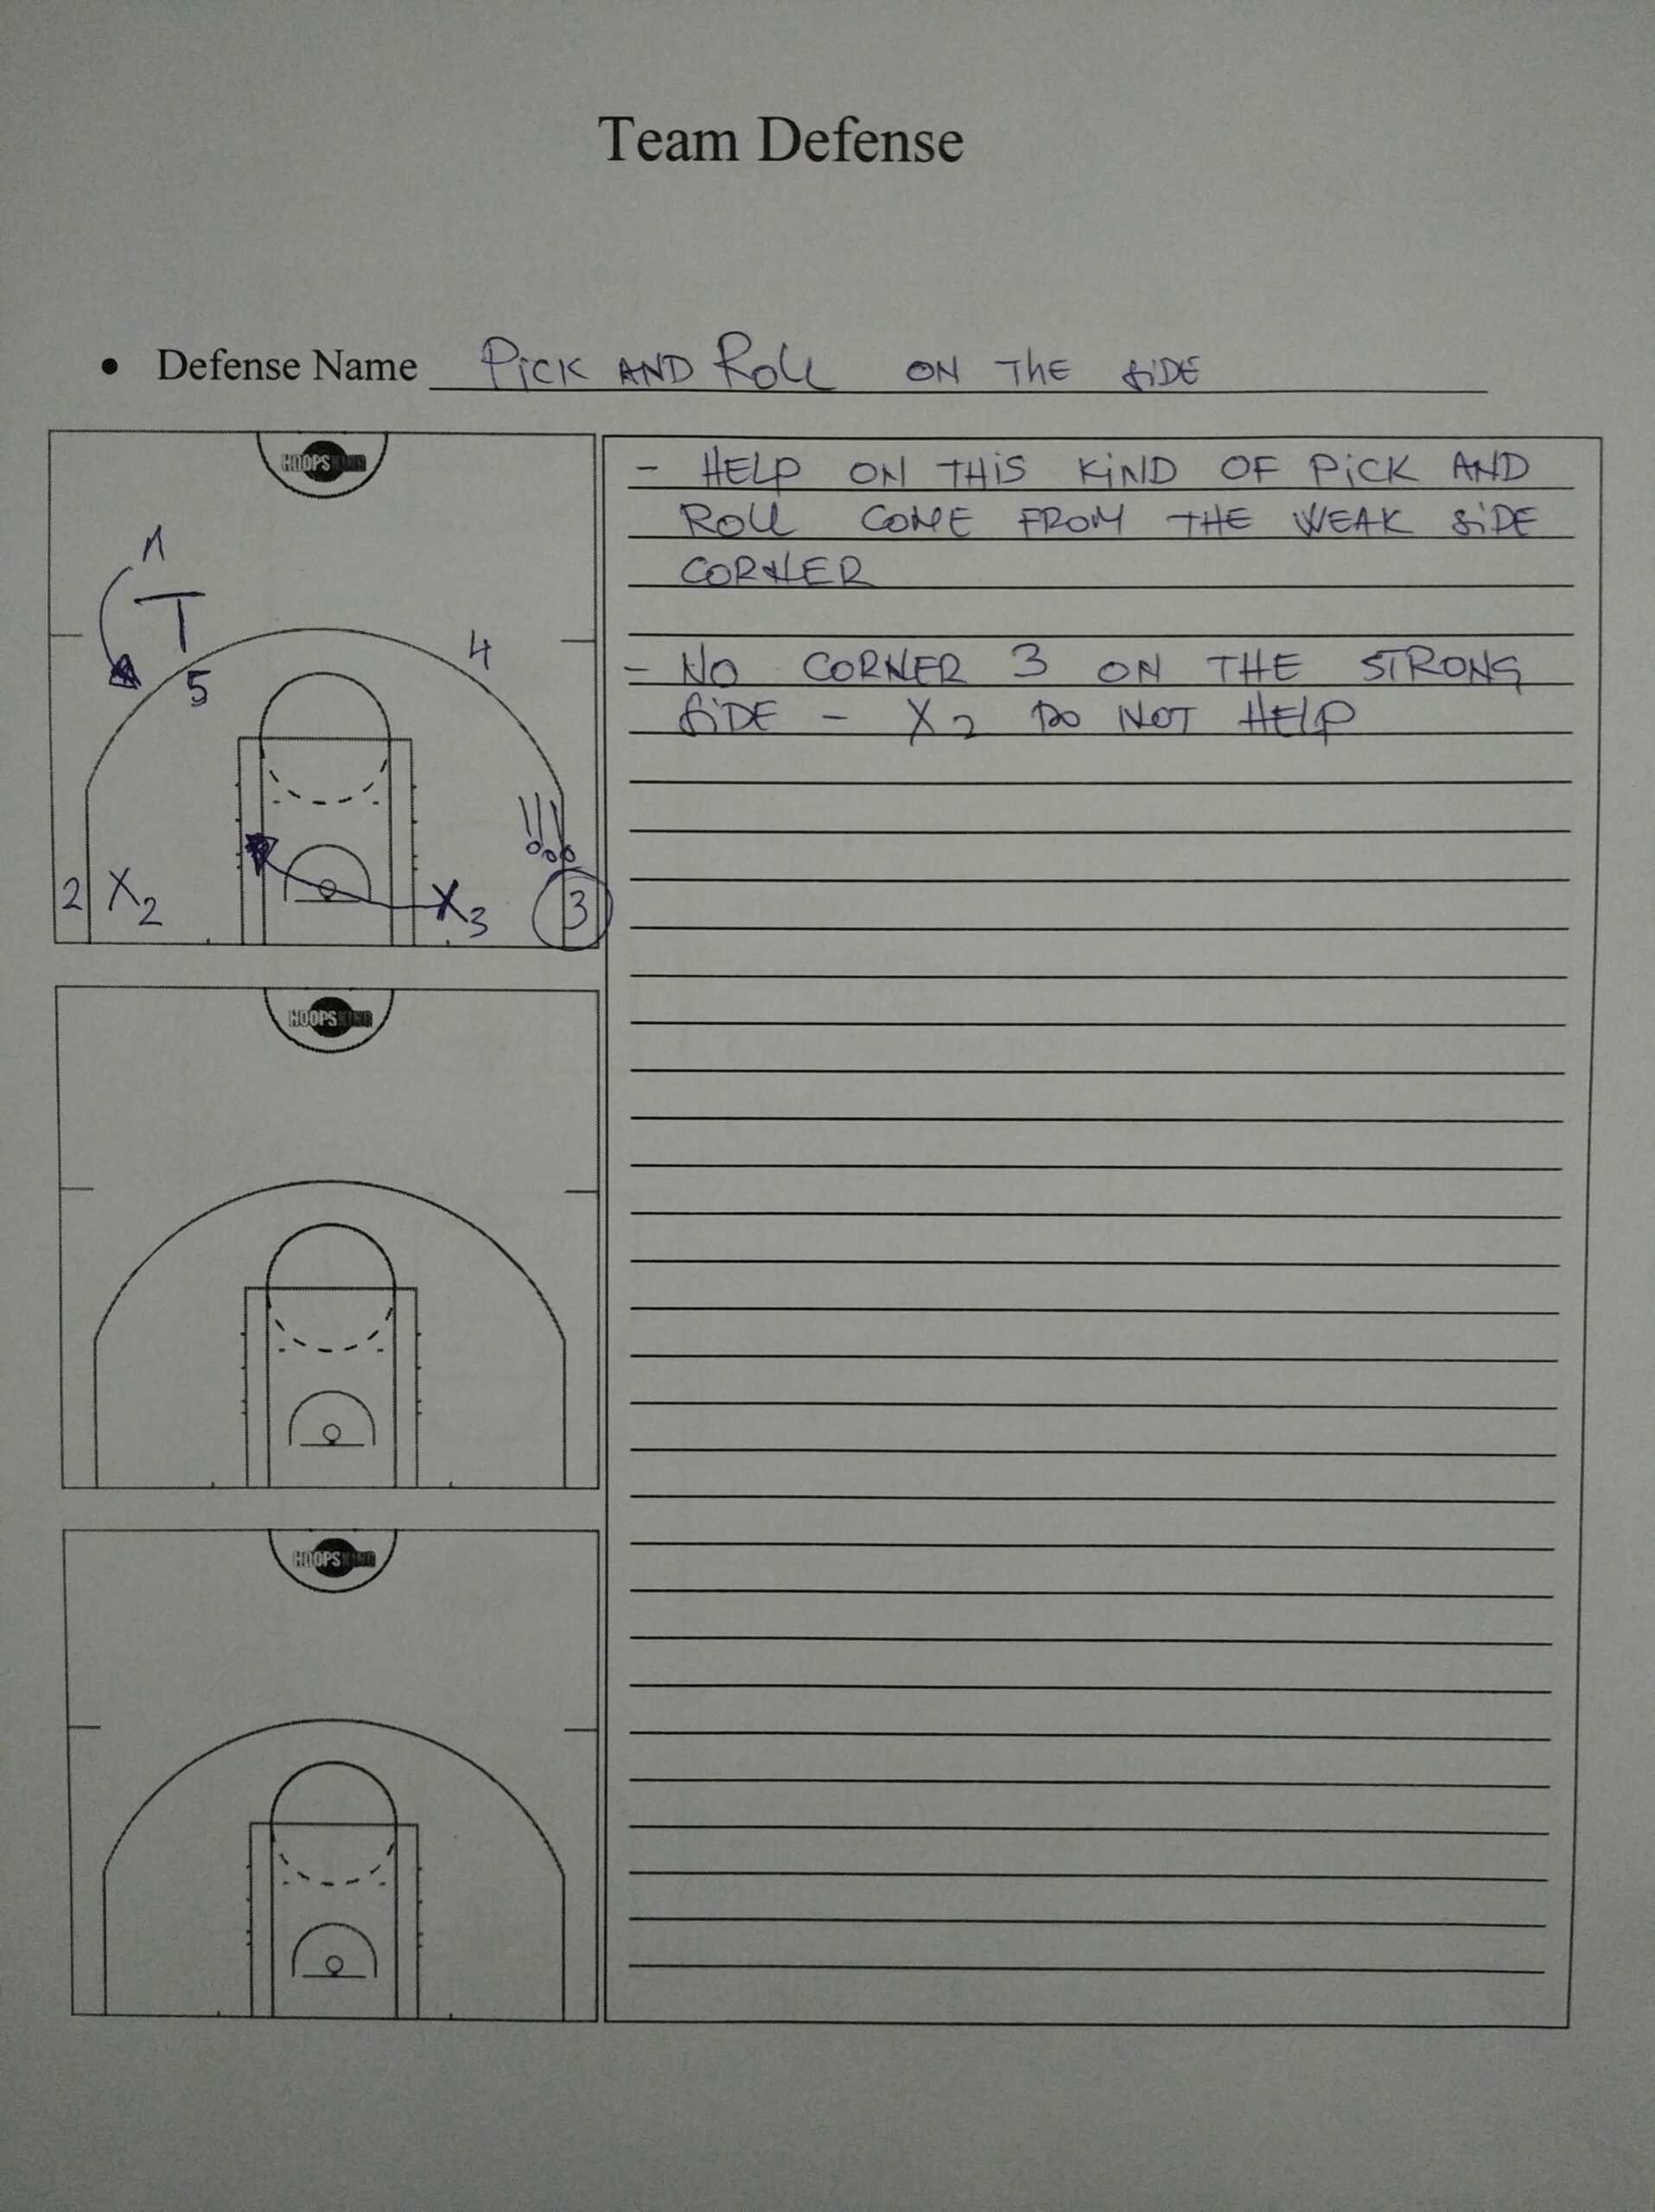 Team Defense
• Defense Name PiCK AND Roll ON ThE SiDE
HOOPSKING
- HELP ON THiS KiND OF PiCK AND
Roll COME FROM THE WEAK SiDE
CORNER
- NO CORNER 3 ON THE STRONG
SiDE - X2 DO NOT HELP
1
4
5
!!!
2 X2 X3 3
HOOPSKING
HOOPSKING